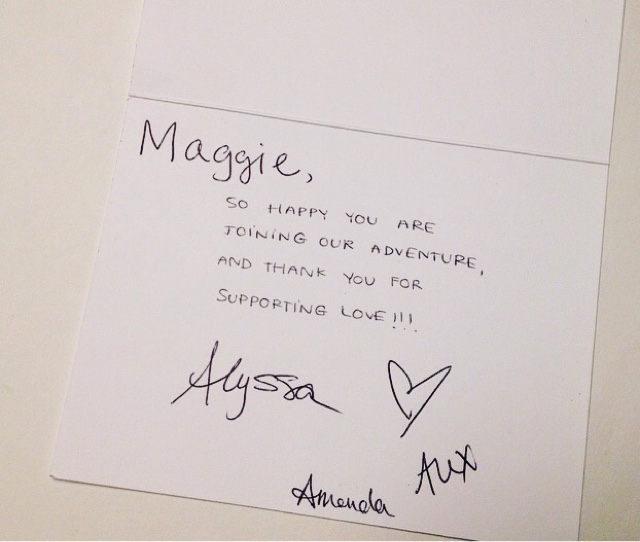 Maggie,
SO HAPPY YOU ARE
JOINING OUR ADVENTURE,
AND THANK YOU FOR
SUPPORTING LOVE!!!
Alyssa
Alex
Amanda